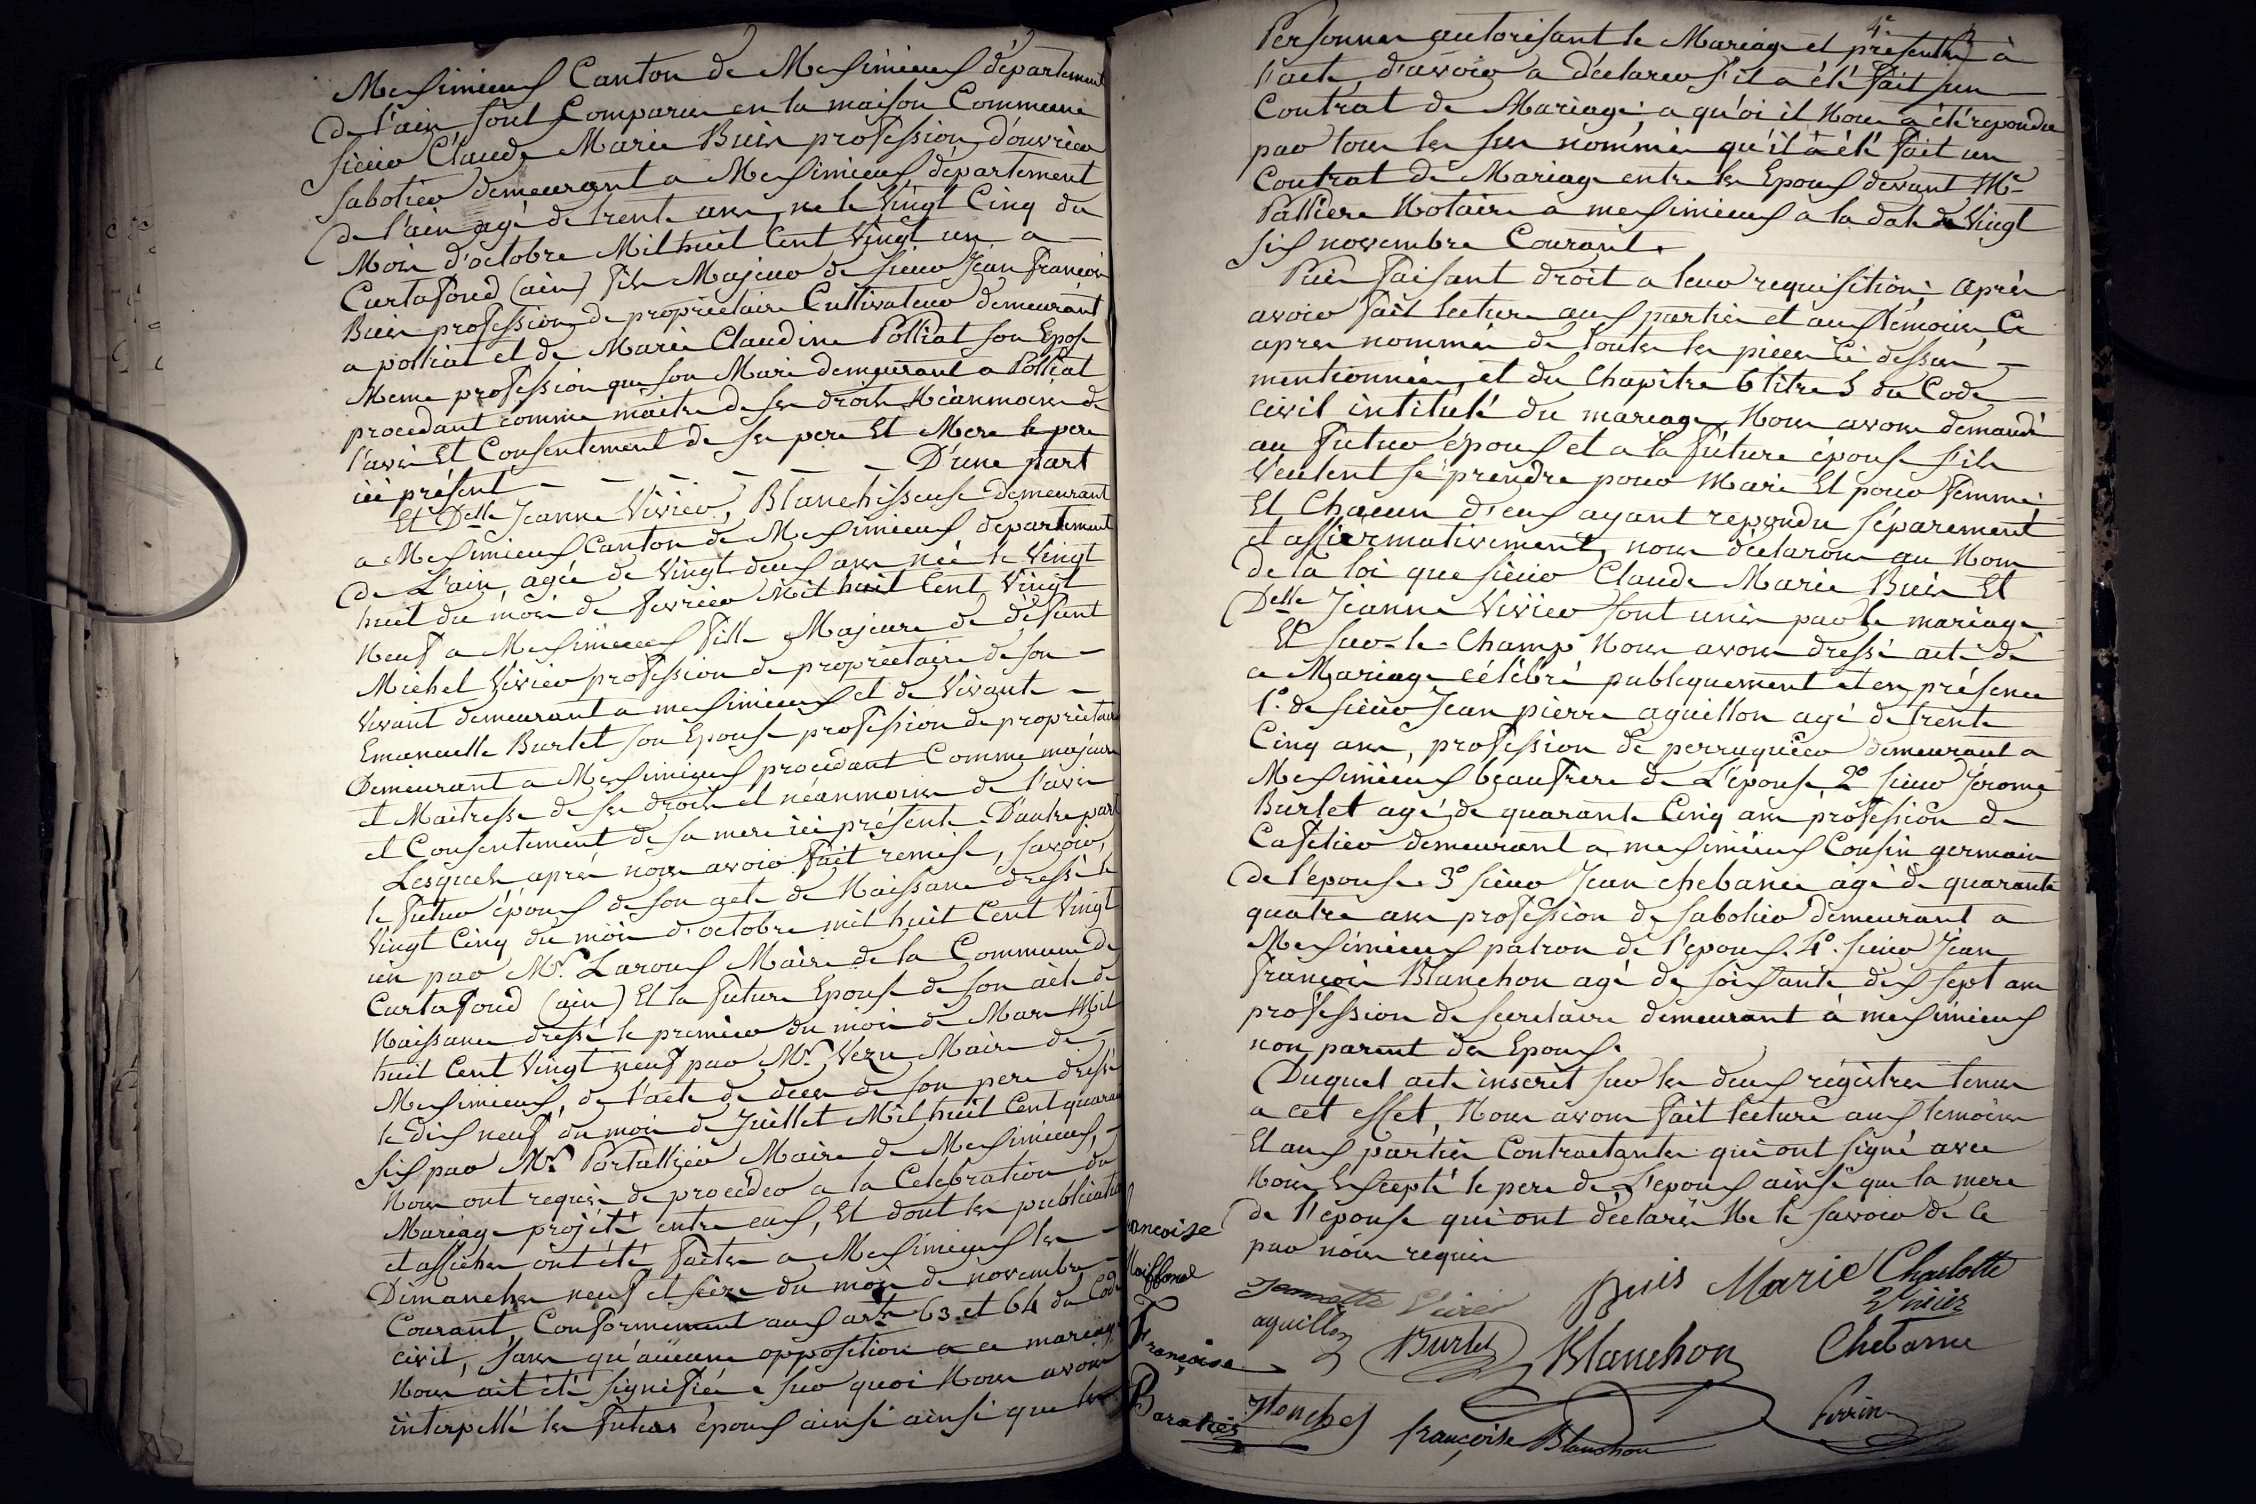 Meximieux Canton de Meximieux département
de l'ain sont Comparus en la maison Commune
sieur Claude Marie Buis profession d'ouvrier
sabotier demeurant a Meximieux département
de l'ain agé de trente ans, né le Vingt Cinq du
Mois d'octobre Mil huit Cent Vingt un a
Curtafond (ain) fils Majeur de sieur Jean françois
Buis profession de propriétaire Cultivateur demeurant
a polliat et de Marie Claudine Polliat son Epose
Meme profession que son Mari demeurant a Polliat
procedant comme maitre de ses droits Néanmoins de
l'avis Et Consentement de ses pere Et Mere le pere
ici présent — — — — — D'une part
Et Delle Jeanne Vivier, Blanchisseuse demeurant
a Meximieux Canton de Meximieux département
de L'ain, agée de Vingt deux ans née le Vingt
huit du mois de fevrier Mil huit Cent Vingt
Neuf a Meximieux fille Majeure de défunt
Michel Vivier profession de propriétaire de son
Vivant demeurant a meximieux et de Vivante
Emanuelle Burlet son Epouse profession de propriétaire
Demeurant a Meximieux procédant Comme majeure
et Maitresse de ses droits et néanmoins de l'avis
et Consentement de sa mere ici présente. D'autre part
Lesquels après nous avoir fait remise, savoir,
le futur époux de son acte de Naissance dressé le
Vingt Cinq du mois d'octobre mil huit Cent Vingt
un par Mr. Laroux Maire de la Commune de
Curtafond (ain) Et la future Epouse de son acte de
Naissance dressé le premier du mois de Mars Mil
huit Cent Vingt neuf par Mr. Vezu Maire de
Meximieux, de l'acte de deces de son pere dressé
le dix neuf du mois de Juillet Mil huit Cent quarante
six par Mr. Portallier Maire de Meximieux,
Nous ont requis de procéder a la Celebration du
Mariage projété entre eux, Et dont les publications
et affiches ont été faites a Meximieux les
Dimanches neuf et seize du mois de novembre
Courant, Conformement aux arts 63 et 64 du Code
civil, sans qu'aucune opposition a ce mariage
Nous ait été signifiée. sur quoi Nous avons
interpellé les futurs époux ainsi ainsi que les
Personnes autorisant le Mariage et présentes à
l'acte, d'avoir a déclarer s'il a été fait un
Contrat de Mariage; a qu'oi il Nous a été repondu
par tous les sus nommés qu'il à été fait un
Contrat de Mariage entre les Epoux devant Me
Pallière Notaire a meximieux a la date du Vingt
six novembre Courant.
Puis faisant droit a leur requisition; après
avoir fait lecture aux parties et aux témoins Ci
apres nommés de toutes les pieces Ci dessus
mentionnées, et du Chapitre 6 titre 5 du Code
civil intitulé du mariage, Nous avons demandé
au futur époux et a la future épouse s'ils
Veulent se prendre pour Mari Et pour femme;
Et Chacun d'eux ayant repondu séparement
et affirmativement, nous déclarons au Nom
de la loi que sieur Claude Marie Buis Et
Delle Jeanne Vivier sont unis par le mariage
Et sur-le-Champ Nous avons dressé acte de
ce Mariage célébré publiquement et en présence
1°. de sieur Jean pierre aguillon agé de trente
Cinq ans, profession de perruquier demeurant a
Meximieux beaufrere de L'épouse, 2° sieur Jérome
Burlet agé de quarante Cinq ans profession de
Cafetier demeurant a meximieux Cousin germain
de l'épouse 3° sieur Jean chebance agé de quarante
quatre ans profession de sabotier demeurant a
Meximieux patron de l'epoux. 4°. sieur Jean
françois Blanchon agé de soixante dix sept ans
profession de secretaire demeurant à meximieux
non parent des Epoux.
Duquel acte inscrit sur les deux régistres tenus
a cet effet, Nous avons fait lecture aux temoins
Et aux parties Contractantes qui ont signé avec
Nous Excepté le pere de L'epoux ainsi que la mere
de l'épouse qui ont déclarés Ne le savoir de ce
par nous requis
Jeannette Vivier Buis Marie Charlotte
Vivier
aguillon Burlet Blanchon Chebance
francoise
françoise
françoise Blanchon Perrin